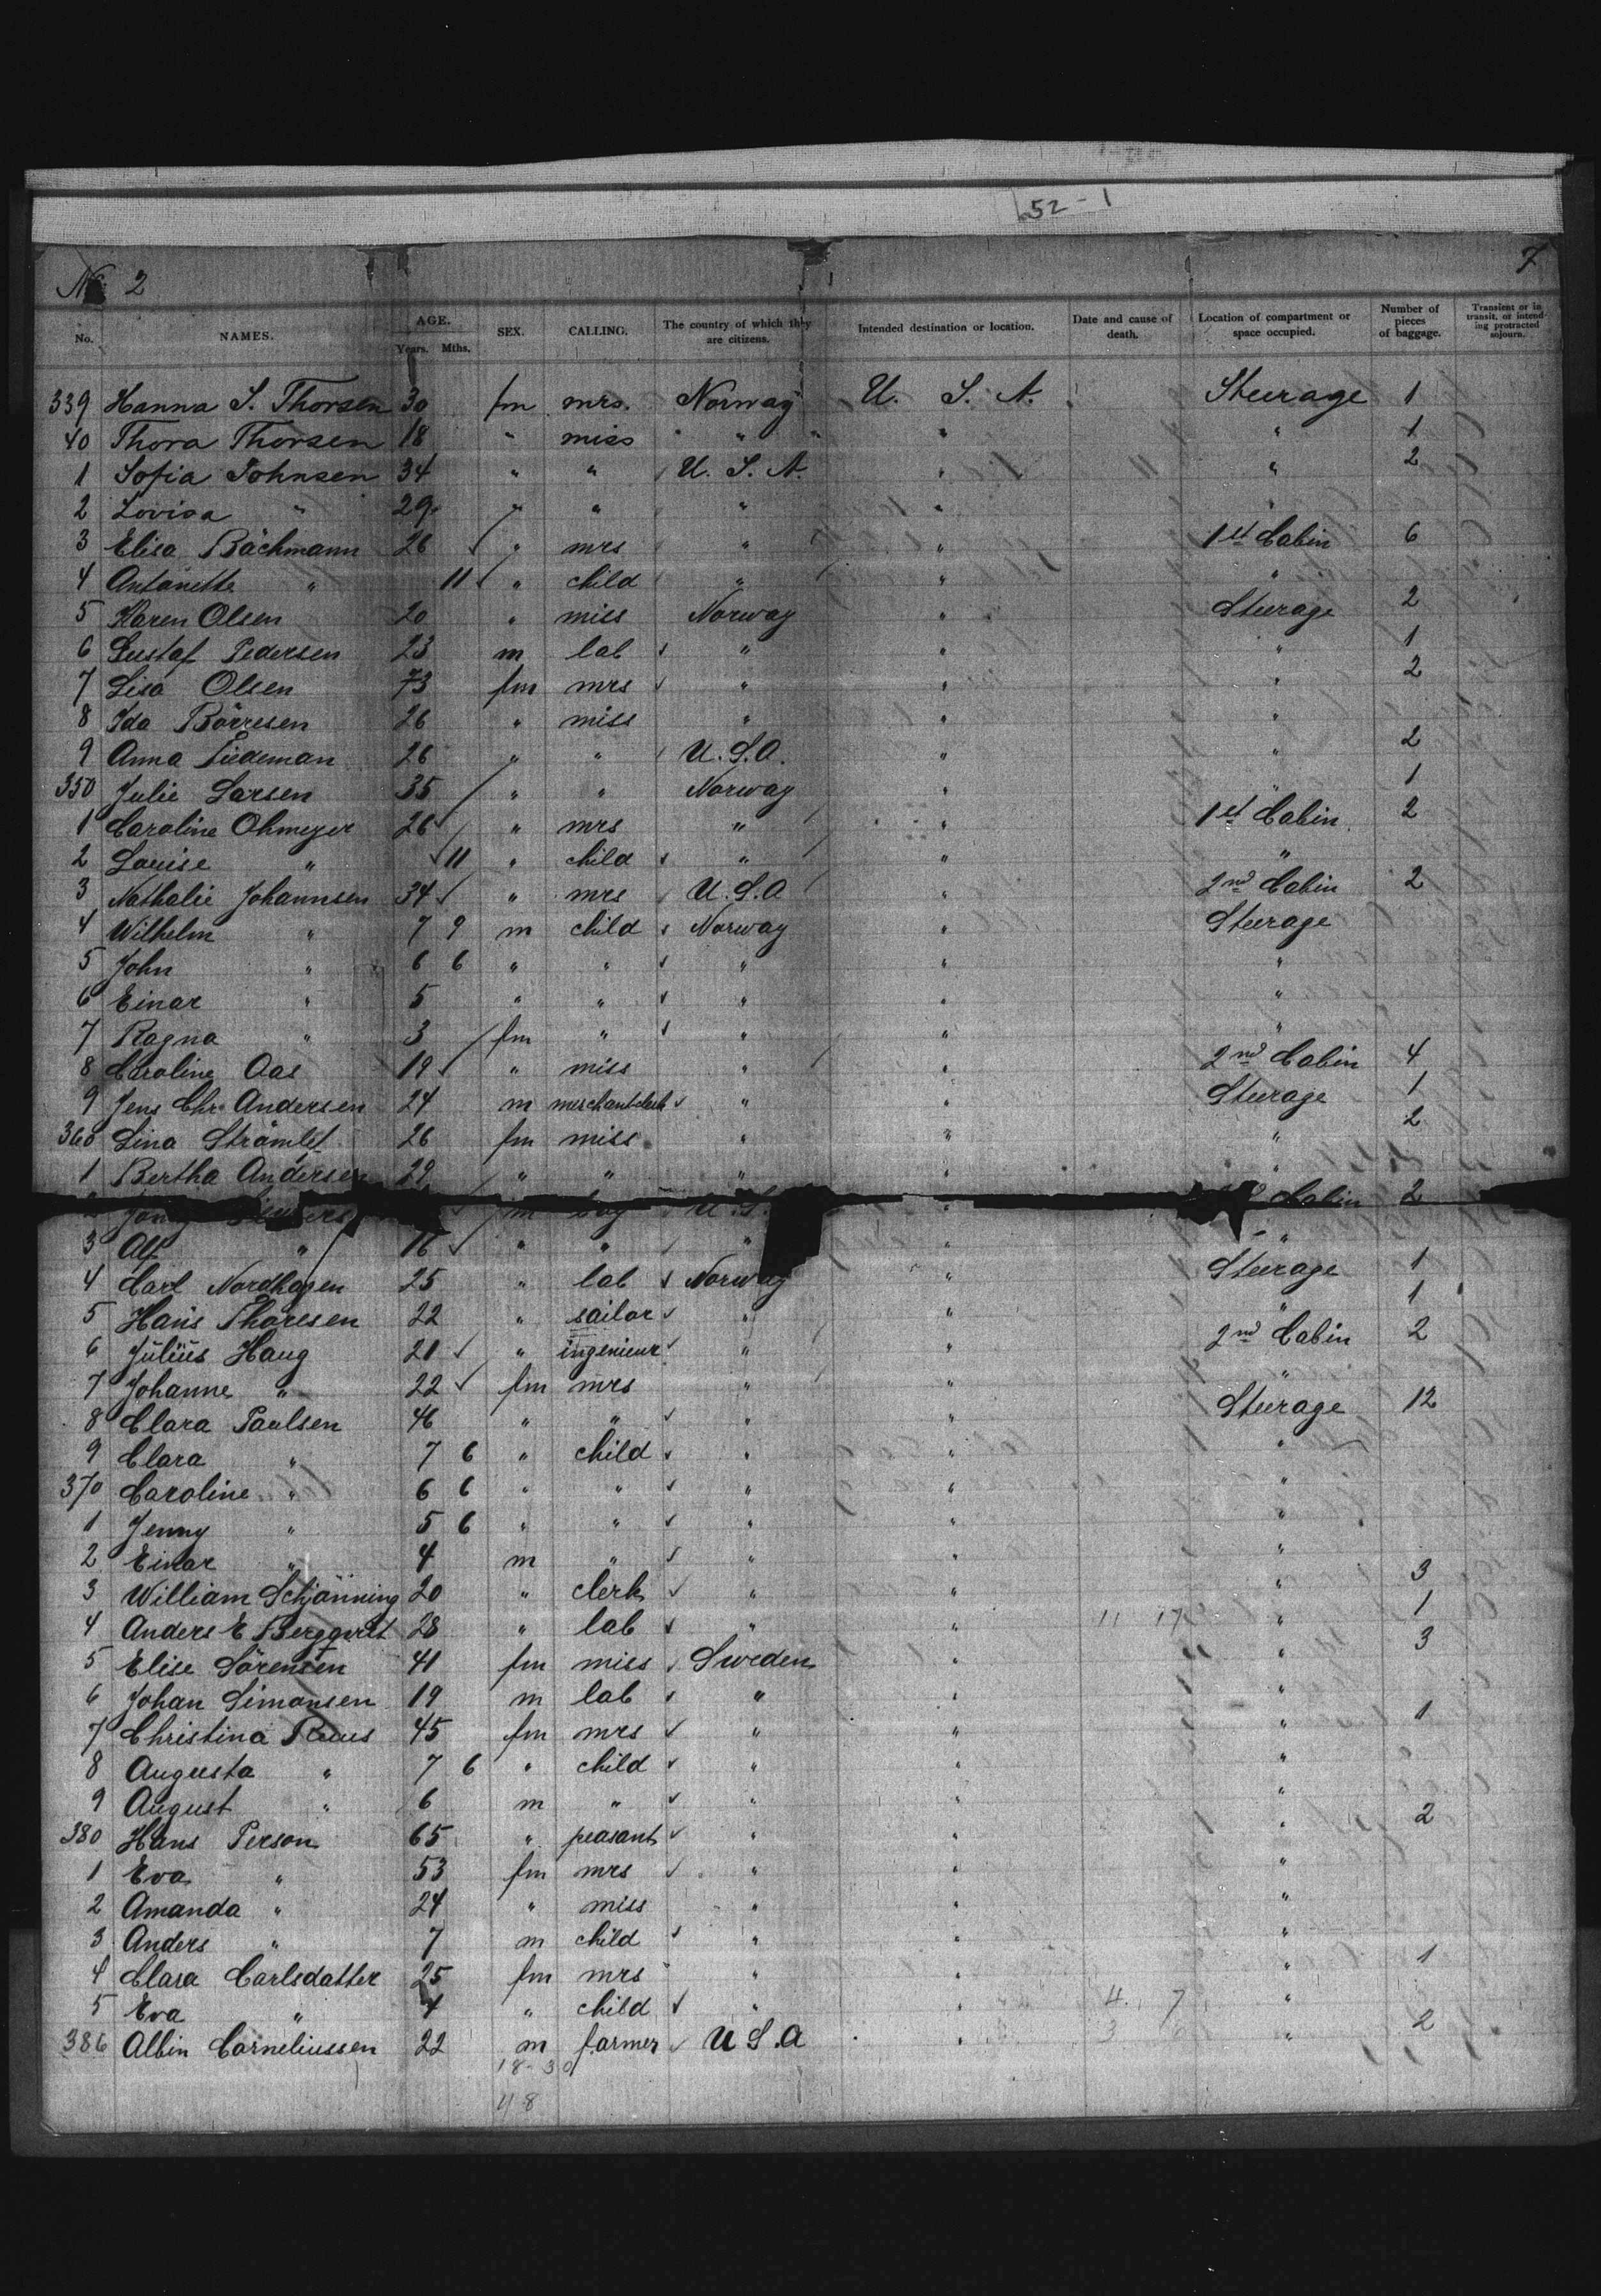 52 - 1
No. 2
7
No. NAMES. AGE. Years. Mths. SEX. CALLING. The country of which they are citizens. Intended destination or location. Date and cause of death. Location of compartment or space occupied. Number of pieces of baggage. Transient or in transit, or intending protracted sojourn.
339 Hanna S. Thorsen 30 fm mrs. Norway U. S. A. Steerage 1
40 Thora Thorsen 18 " miss " " " 1
1 Sofia Johnsen 34 " " U. S. A. " " 2
2 Lovisa " 29 " " " " "
3 Elisa Bachmann 26 " mrs " " 1st Cabin 6
4 Antonette " 11 " child " " "
5 Karen Olsen 20 " miss Norway " Steerage 2
6 Gustaf Pedersen 23 m lab " " " 1
7 Lisa Olsen 73 fm mrs " " " 2
8 Ida Börresen 26 " miss " " "
9 Anna Tiedeman 26 " " U. S. A. " " 2
350 Julie Larsen 35 " " Norway " " 1
1 Caroline Ohmeyer 26 " mrs " " 1st Cabin 2
2 Louise " 11 " child " " "
3 Nathalie Johannsen 34 " mrs U. S. A " 2nd Cabin 2
4 Wilhelm " 7 9 m child Norway " Steerage
5 John " 6 6 " " " " "
6 Einar " 5 " " " " "
7 Ragna " 3 fm " " " "
8 Caroline Aas 19 " miss " " 2nd Cabin 4
9 Jens Chr. Andersen 24 m merchant-clerk " " Steerage 1
360 Lina 26 fm miss " " " 2
1 Bertha Andersen 29 " " " " "
m boy U. S. " Cabin 2
3 Alf " 16 " " " " "
4 Carl Nordhagen 25 " lab Norway " Steerage 1
5 Hans Thoresen 22 " sailor " " " 1
6 Julius Haug 21 " ingenieur " " 2nd Cabin 2
7 Johanne " 22 fm mrs " " "
8 Clara Paulsen 46 " " " " Steerage 12
9 Clara " 7 6 " child " " "
370 Caroline " 6 6 " " " " "
1 Jenny " 5 6 " " " " "
2 Einar " 4 m " " " "
3 William Schjönning 20 " clerk " " " 3
4 Anders E Bergqvist 28 " lab " " 11 17 " 1
5 Elise Sörensen 41 fm miss Sweden " " 3
6 Johan Simonsen 19 m lab " " "
7 Christina 45 fm mrs " " " 1
8 Augusta " 7 6 " child " " "
9 August " 6 m " " " "
380 Hans Person 65 " peasant " " " 2
1 Eva " 53 fm mrs " " "
2 Amanda " 24 " miss " " "
3 Anders " 7 m child " " "
4 Clara Carlsdatter 25 fm mrs " " " 1
5 Eva " 4 " child " " 4. 7 "
386 Albin Corneliussen 22 m farmer U S. A " 3 " 2
18-30
48